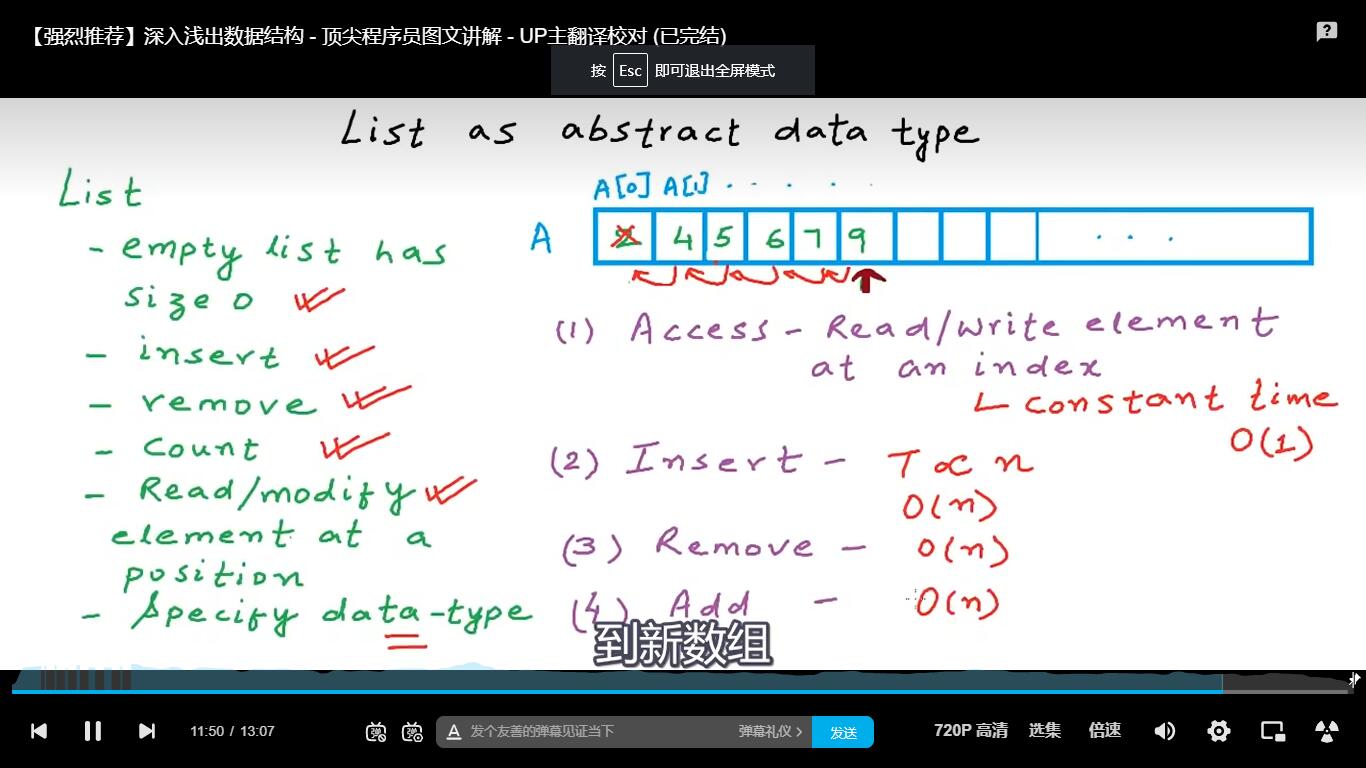 【强烈推荐】深入浅出数据结构 - 顶尖程序员图文讲解 - UP主翻译校对 (已完结)
按 Esc 即可退出全屏模式
List as abstract data type
List
- empty list has
size 0
- insert
- remove
- Count
- Read/modify
element at a
position
- Specify data-type
A[0] A[1] . . . .
A 2 4 5 6 7 9 . . .
(1) Access - Read/Write element
at an index
constant time
O(1)
(2) Insert - T ∝ n
O(n)
(3) Remove - O(n)
(4) Add - O(n)
到新数组
11:50 / 13:07
弹 弹
A 发个友善的弹幕见证当下
弹幕礼仪 >
发送
720P 高清
选集
倍速